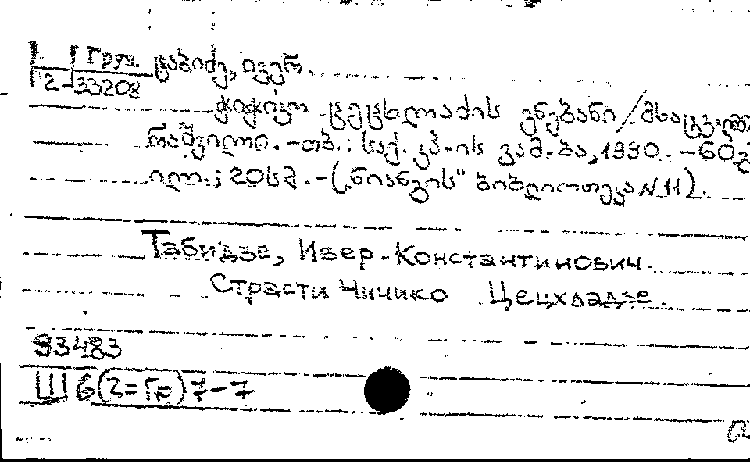 Груз. ტაბიძე, ივერ.
2-33208
ჭიჭიკო ცეცხლაძის ვნებანი / მხატვ.
რაშვილი. - თბ.: საქ. კპ-ის გამ-ბა, 1990. - 60გვ
ილ.; 20სმ. - („ნიანგის" ბიბლიოთეკა N 11).
Табидзе, Ивер-Константинович.
Страсти Чичико Цецхладзе.
93483
Ш 6(2=Гр)7-7